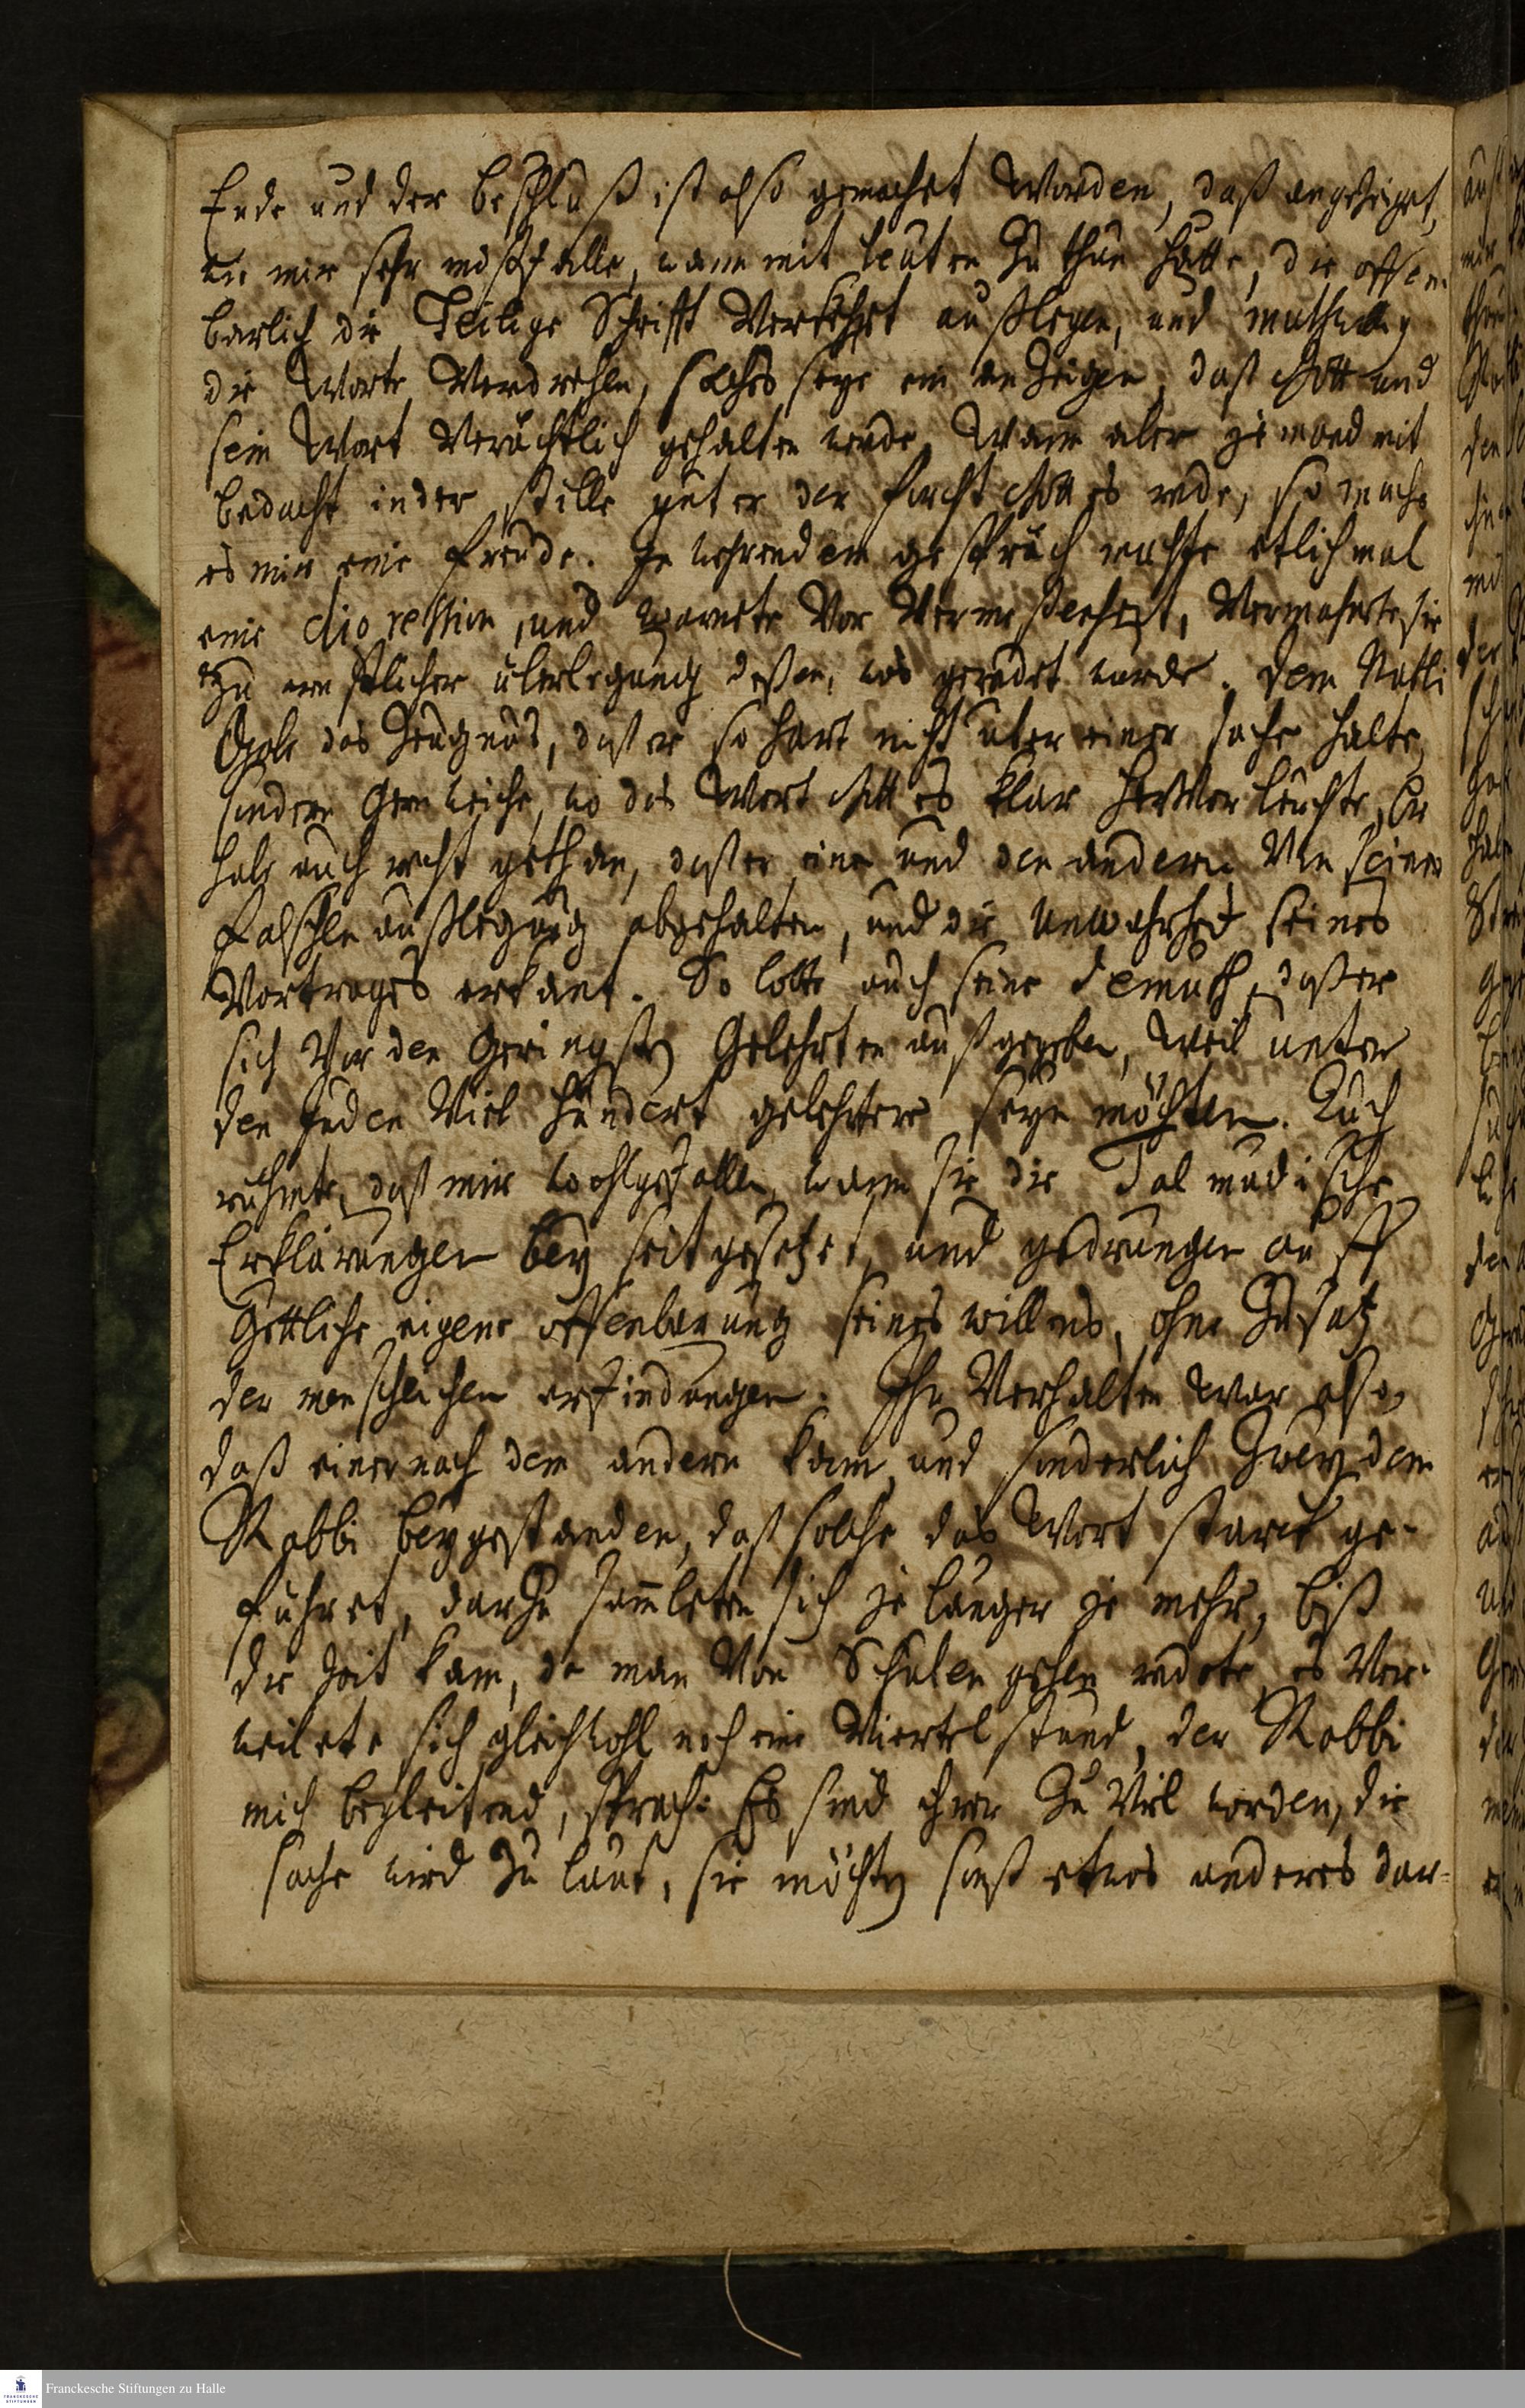 Ende und der beschluß ist also gemachet worden, daß angezeiget,
wie mir sehr mißfalle, wann mit leuten zu thun hätte, die offen-
barlich die Heilige Schrifft verkehrt außlegen, und muthwillig
die Worte verdrehen, solches seye ein anzeigen, daß Gott und
sein Wort verächtlich gehalten werde, Wann aber jemand mit
bedacht in der stille unter der forcht Gottes rede, so mache
es mir eine freude. In wehrendem gespräch machte etlichmal
eine digression, und warnete vor Vermessenheit, Vermahnete sie
zu ernstlicher überlegung deßen, was geredet wurde. Dem Rabbi
Gabe das Zeugnus, daß er so hart nicht über einer sache halte,
sondern Gern weiche, wo das Wort Gottes klar hervor leuchte, Er
habe auch recht gethan, daß er eine und den andern von seiner
falschen außlegung abgehalten, und die Unwahrheit seines
Vortrages erkant. So lobte auch seine demuth, daß er
sich vor den Geringsten Gelehrten außgegeben, weil unter
den Juden viel hundert gelehrtere seyn möchten. Auch
rühmete, daß mir wohlgefallen, wann sie die Talmudische
Erklärungen bey seit gesetzet, und gedrungen auff
Göttliche eigene offenbarung seines willens, ohne Zusatz
der menschlichen erfindungen. Ihr Verhalten war also,
daß einer nach dem andern kam, und sonderlich zwey dem
Rabbi beygestanden, daß solche das Wort starck ge-
führet, darzu samleten sich je länger je mehr, biß
die Zeit kam, da man von Schulen gehen redete, es ver-
weilete sich gleichwohl noch eine Viertel stund, der Rabbi
mich begleitend, sprach: Es sind ihrer zu viel worden, die
sache wird zu laut, sie möchten sonst etwas anderes dar-
Franckesche Stiftungen zu Halle